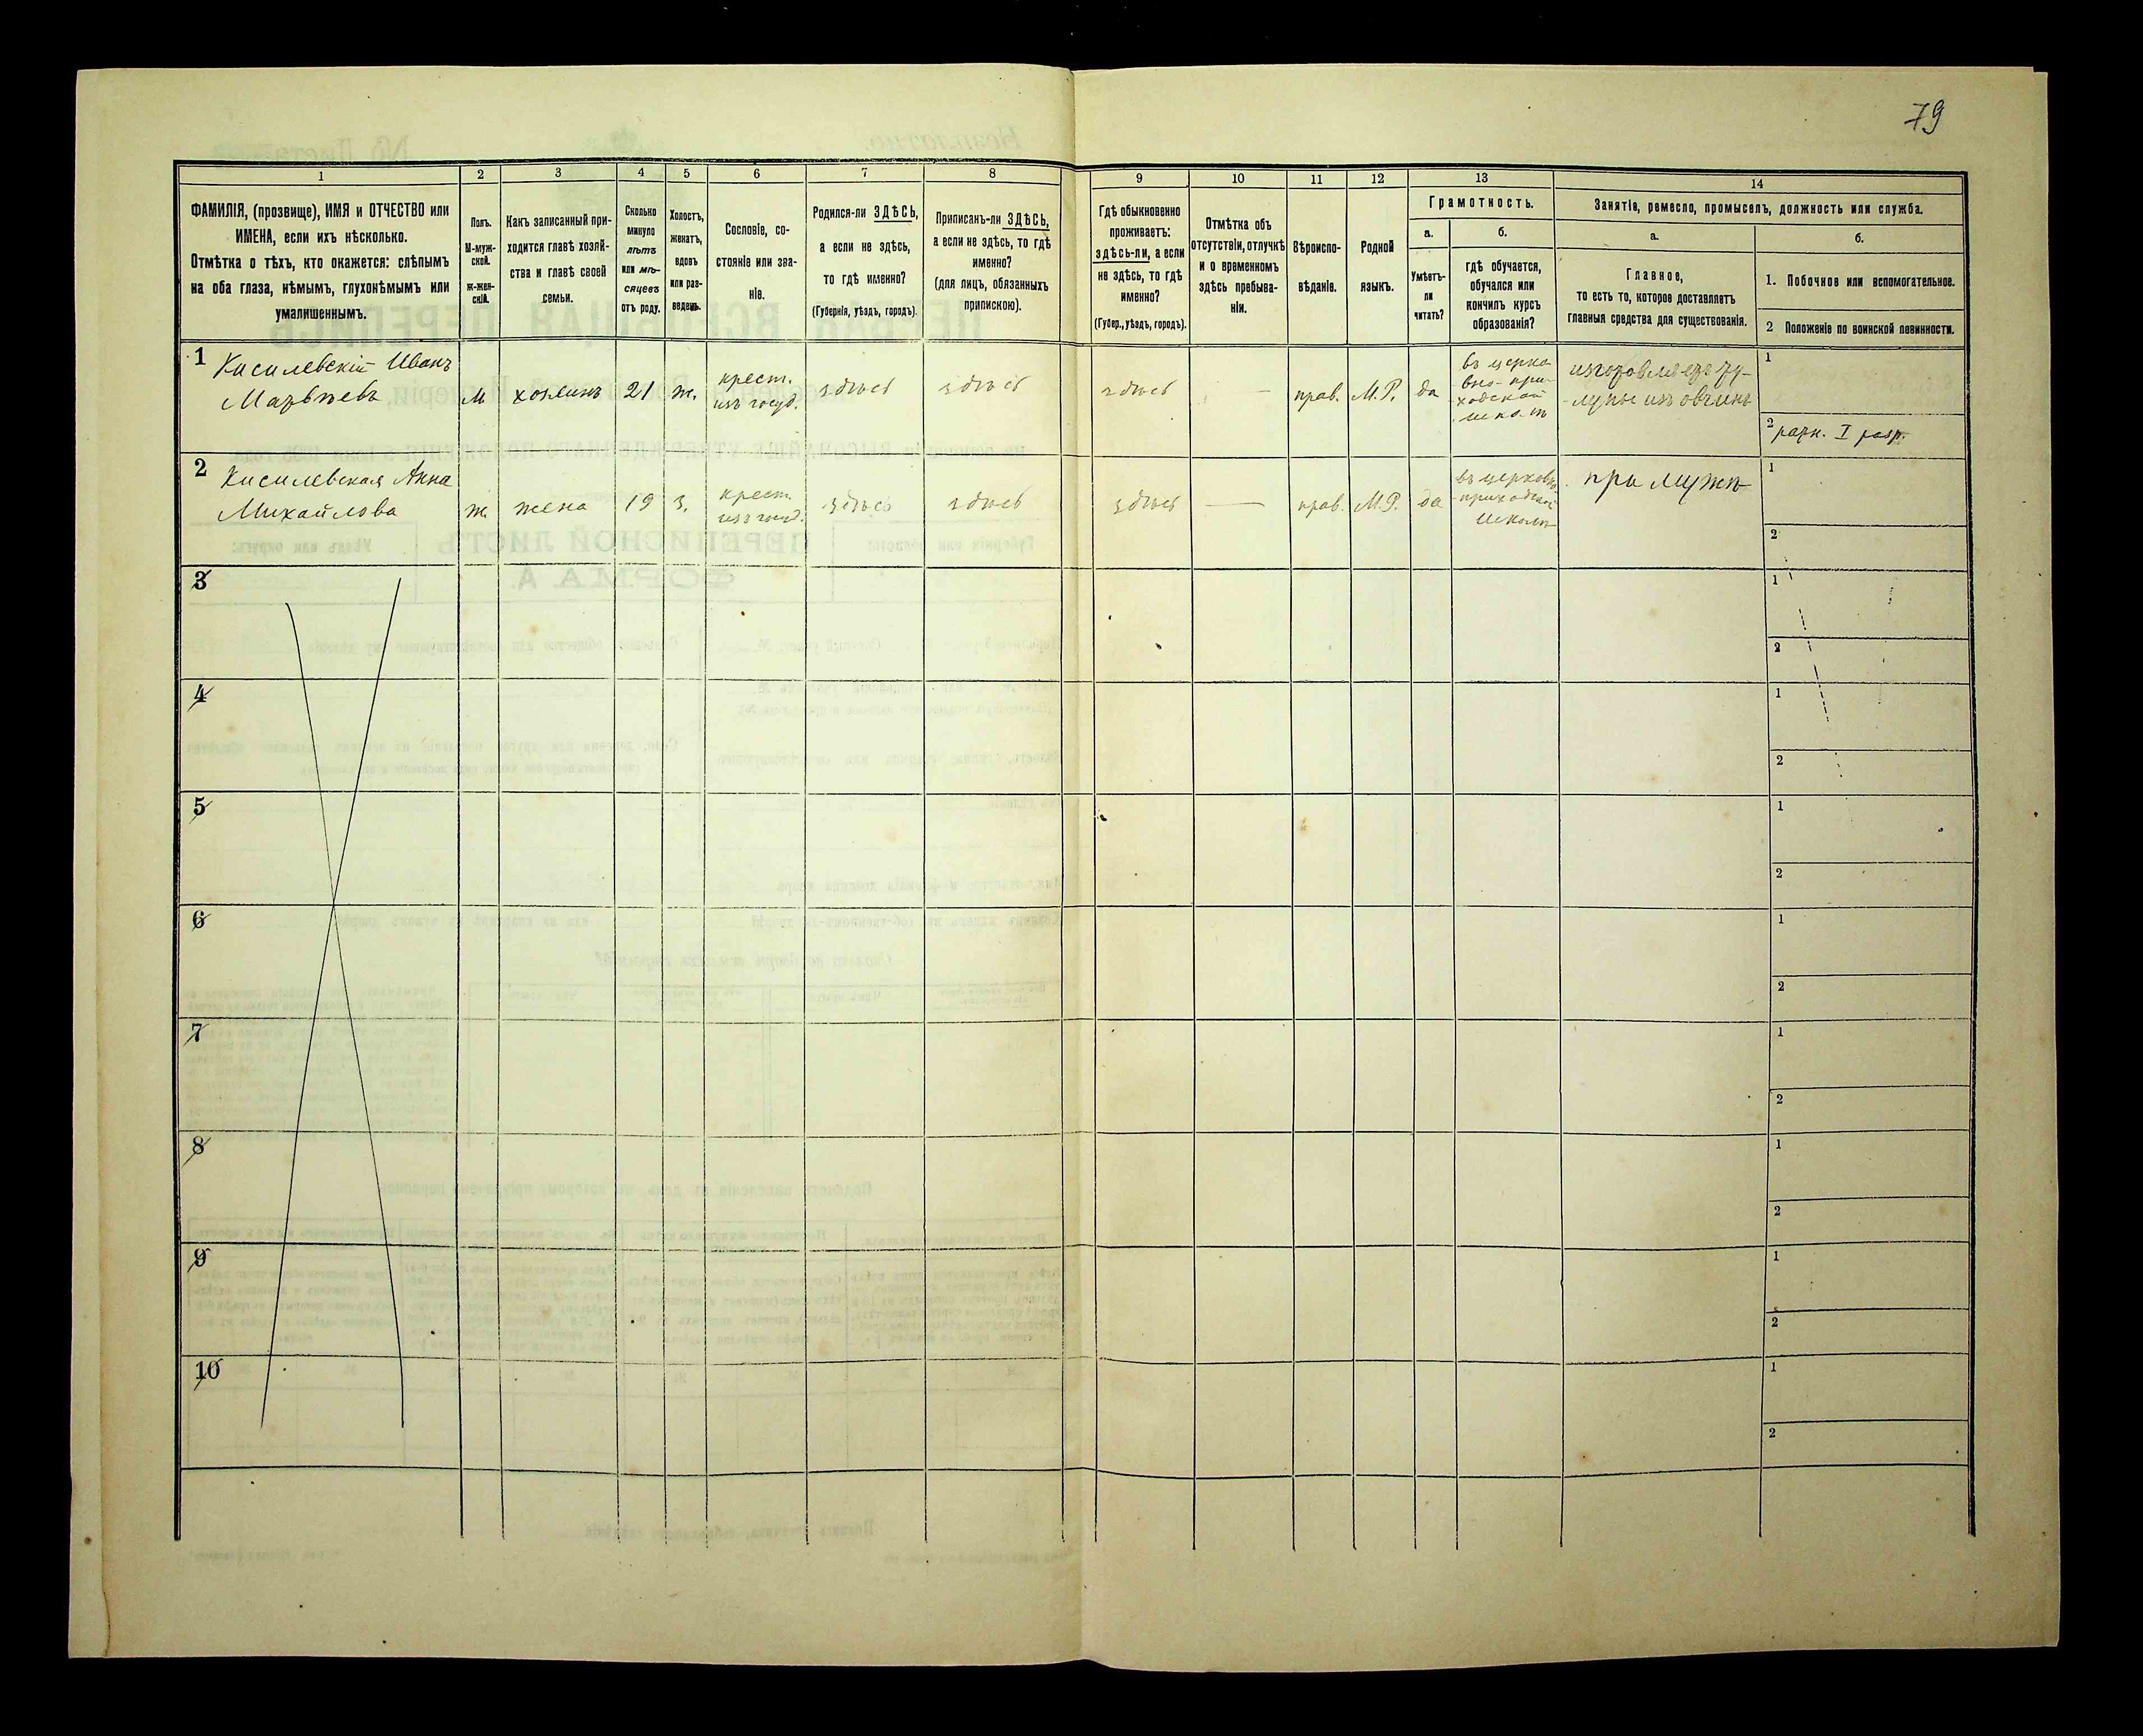 79
1
2
3
4
5
6
7
8
9
10
11
12
13
14
ФАМИЛІЯ, (прозвище), ИМЯ и ОТЧЕСТВО или
ИМЕНА, если ихъ нѣсколько.
Отмѣтка о тѣхъ, кто окажется: слѣпымъ
на оба глаза, нѣмымъ, глухонѣмымъ или
умалишеннымъ.
Полъ.
М-муж-
ской.
ж-жен-
скій.
Какъ записанный при-
ходится главѣ хозяй-
ства и главѣ своей
семьи.
Сколько
минуло
лѣтъ
или мѣ-
сяцевъ
отъ роду.
Холостъ,
женатъ,
вдовъ
или раз-
веденъ.
Сословіе, со-
стояніе или зва-
ніе.
Родился-ли ЗДѢСЬ,
а если не здѣсь,
то гдѣ именно?
(Губернія, уѣздъ, городъ).
Приписанъ-ли ЗДѢСЬ,
а если не здѣсь, то гдѣ
именно?
(для лицъ, обязанныхъ
припискою).
Гдѣ обыкновенно
проживаетъ:
здѣсь-ли, а если
не здѣсь, то гдѣ
именно?
(Губер., уѣздъ, городъ).
Отмѣтка объ
отсутствіи, отлучкѣ
и о временномъ
здѣсь пребыва-
ніи.
Вѣроиспо-
вѣданіе.
Родной
языкъ.
Грамотность.
а.
Умѣетъ-
ли
читать?
б.
гдѣ обучается,
обучался или
кончилъ курсъ
образованія?
Занятіе, ремесло, промыселъ, должность или служба.
а.
Главное,
то есть то, которое доставляетъ
главныя средства для существованія.
б.
1. Побочное или вспомогательное.
2 Положеніе по воинской повинности.
1
Кисилевскій Иванъ
Матвѣевъ
м.
хозяинъ
21
ж.
крест.
изъ госуд.
здѣсь
здѣсь
здѣсь
—
прав.
М.Р.
да
въ церко
вно-при-
ходской
школѣ
изготовляетъ ту-
лупы изъ овчинъ
1
2 ратн. I разр.
2
Кисилевская Анна
Михайлова
ж.
жена
19
з.
крест.
изъ госуд.
здѣсь
здѣсь
здѣсь
—
прав.
М.Р.
да
въ церковно
приходской
школѣ
при мужѣ
1
2
3
1
2
4
1
2
5
1
2
6
1
2
7
1
2
8
1
2
9
1
2
10
1
2